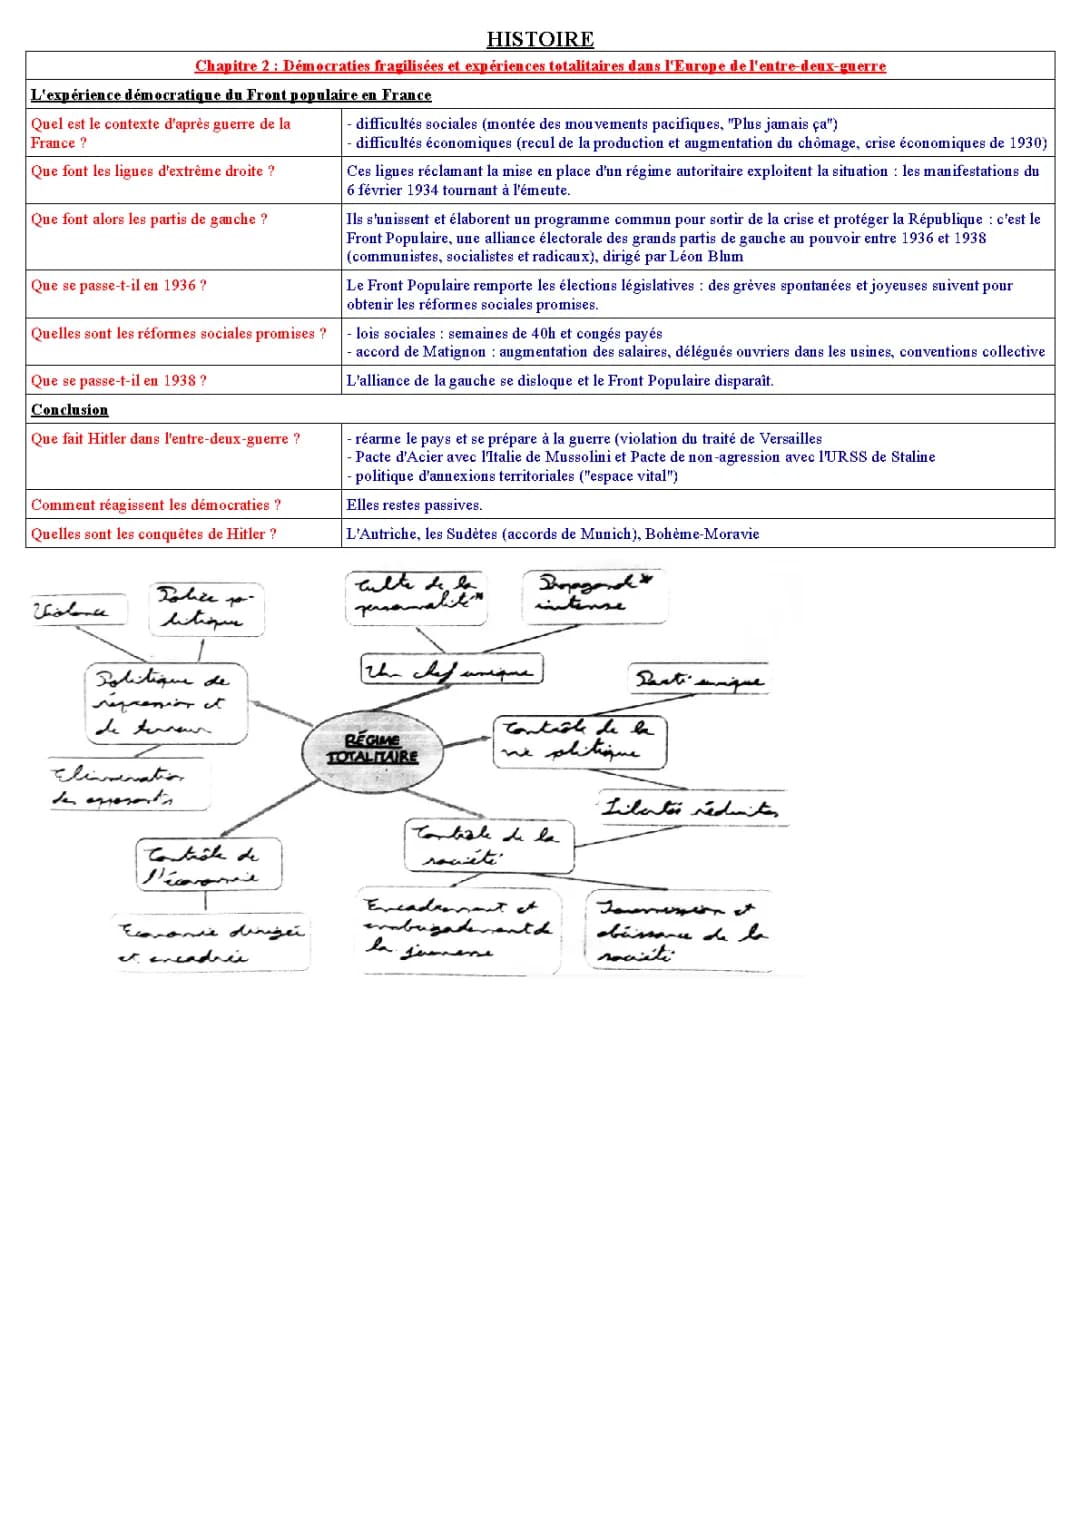 HISTOIRE
Chapitre 2 : Démocraties fragilisées et expériences totalitaires dans l'Europe de l'entre-deux-guerre
L'expérience démocratique du Front populaire en France
Quel est le contexte d'après guerre de la
France ?
- difficultés sociales (montée des mouvements pacifiques, "Plus jamais ça")
- difficultés économiques (recul de la production et augmentation du chômage, crise économiques de 1930)
Que font les ligues d'extrême droite ?
Ces ligues réclamant la mise en place d'un régime autoritaire exploitent la situation : les manifestations du
6 février 1934 tournant à l'émeute.
Que font alors les partis de gauche ?
Ils s'unissent et élaborent un programme commun pour sortir de la crise et protéger la République : c'est le
Front Populaire, une alliance électorale des grands partis de gauche au pouvoir entre 1936 et 1938
(communistes, socialistes et radicaux), dirigé par Léon Blum
Que se passe-t-il en 1936 ?
Le Front Populaire remporte les élections législatives : des grèves spontanées et joyeuses suivent pour
obtenir les réformes sociales promises.
Quelles sont les réformes sociales promises ?
- lois sociales : semaines de 40h et congés payés
- accord de Matignon : augmentation des salaires, délégués ouvriers dans les usines, conventions collective
Que se passe-t-il en 1938 ?
L'alliance de la gauche se disloque et le Front Populaire disparaît.
Conclusion
Que fait Hitler dans l'entre-deux-guerre ?
- réarme le pays et se prépare à la guerre (violation du traité de Versailles
- Pacte d'Acier avec l'Italie de Mussolini et Pacte de non-agression avec l'URSS de Staline
- politique d'annexions territoriales ("espace vital")
Comment réagissent les démocraties ?
Elles restes passives.
Quelles sont les conquêtes de Hitler ?
L'Antriche, les Sudètes (accords de Munich), Bohème-Moravie
Violence
Police po-
litique
Culte de la
personnalité*
Propagande*
intense
Politique de
répression et
de terreur
Un chef unique
Parti unique
RÉGIME
TOTALITAIRE
Contrôle de la
vie politique
Elimination
des opposants
Libertés réduites
Contrôle de la
société
Contrôle de
l'économie
Encadrement et
embrigadement de
la jeunesse
Soumission et
obéissance de la
société
Economie dirigée
et encadrée